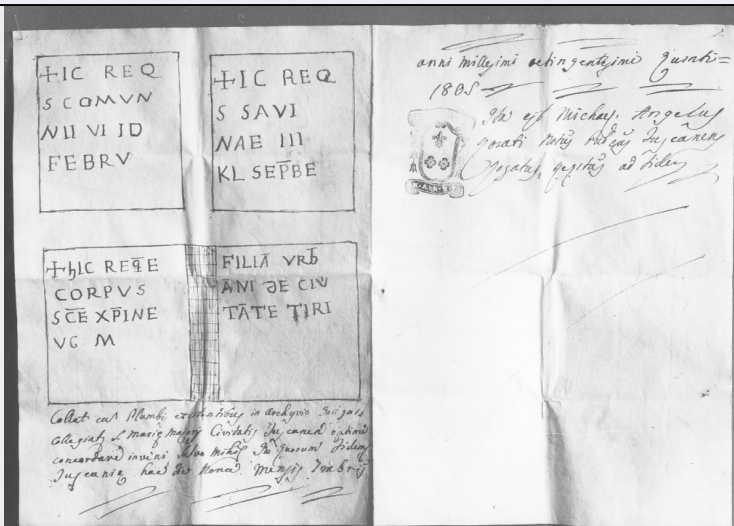 +IC REQ
S COMVN
NII VI ID
FEBRV
+IC REQ
S SAVI
NAE III
KL SEP̅BE
+hIC REQ̅E
CORPVS
SC̅E XP̅INE
VG M
FILIA̅ VRB̅
ANI DE CIV
TA̅TE TIRI
Collat cum Plumbis existentibus in Archivio Insignis
Collegiat S. Marię Majoris Civitatis Tuscanen optime
concordare inveni salvo In quorum fidem
Tuscanię hac die Mensis
anni millesimi octingentesimi quinti=
1805
Ita est Michael Angelus
Notus Tuscanens
Rogatus ad fidem